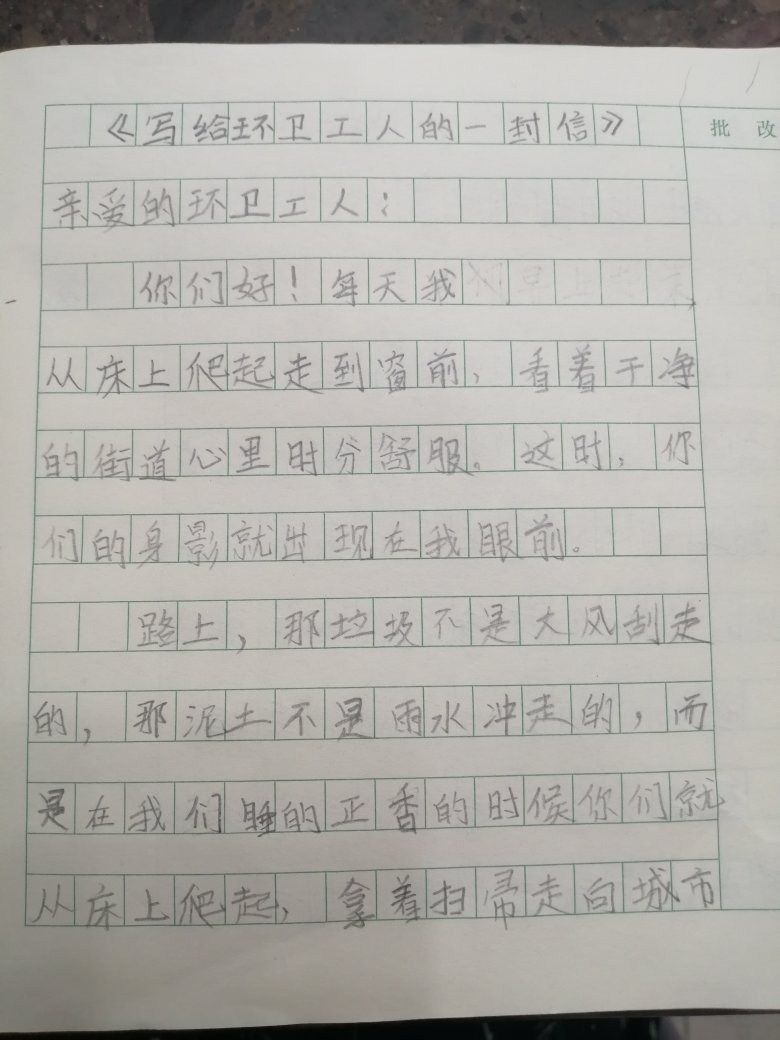 《写给环卫工人的一封信》
批 改
亲爱的环卫工人：
你们好！每天我
从床上爬起走到窗前，看着干净
的街道心里时分舒服。这时，你
们的身影就出现在我眼前。
路上，那垃圾不是大风刮走
的，那泥土不是雨水冲走的，而
是在我们睡的正香的时候你们就
从床上爬起，拿着扫帚走向城市